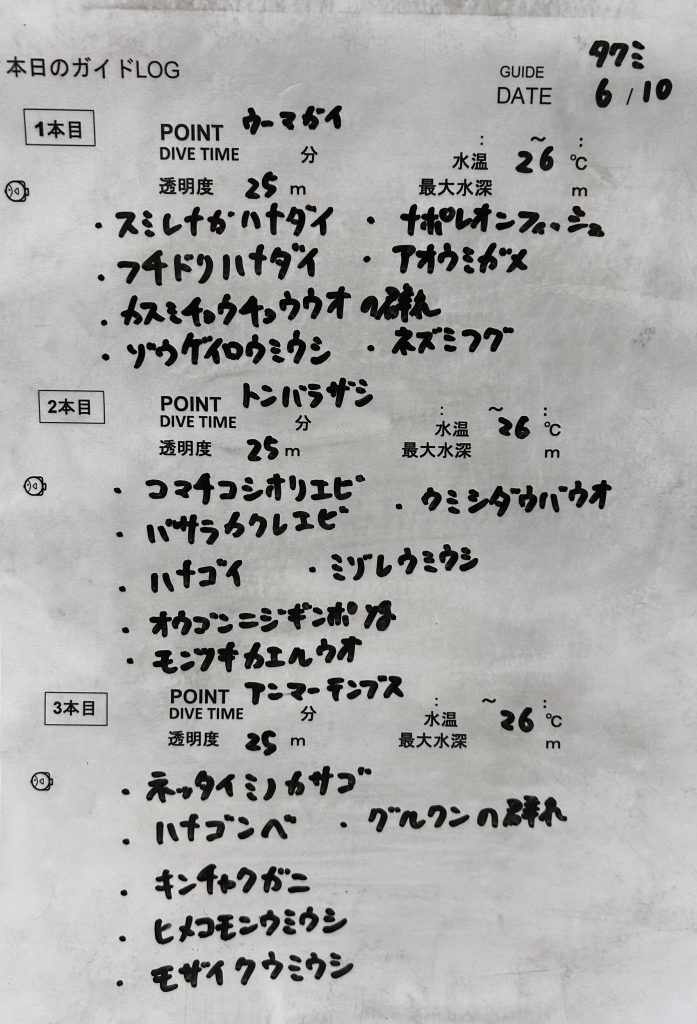 本日のガイドLOG
GUIDE タクミ
DATE 6/10
1本目
POINT ウーマガイ
DIVE TIME 分
: ～ :
水温 26 ℃
透明度 25 m
最大水深 m
・スミレナガハナダイ ・ナポレオンフィッシュ
・フチドリハナダイ ・アオウミガメ
・カスミチョウチョウウオの群れ
・ゾウゲイロウミウシ ・ネズミフグ
2本目
POINT トンバラザシ
DIVE TIME 分
: ～ :
水温 26 ℃
透明度 25 m
最大水深 m
・コマチコシオリエビ ・ウミシダウバウオ
・バサラカクレエビ
・ハナゴイ ・ミゾレウミウシ
・オウゴンニジギンポ
・モンツキカエルウオ
3本目
POINT アンマーテンブス
DIVE TIME 分
: ～ :
水温 26 ℃
透明度 25 m
最大水深 m
・ネッタイミノカサゴ
・ハナゴンベ ・グルクンの群れ
・キンチャクガニ
・ヒメコモンウミウシ
・モザイクウミウシ